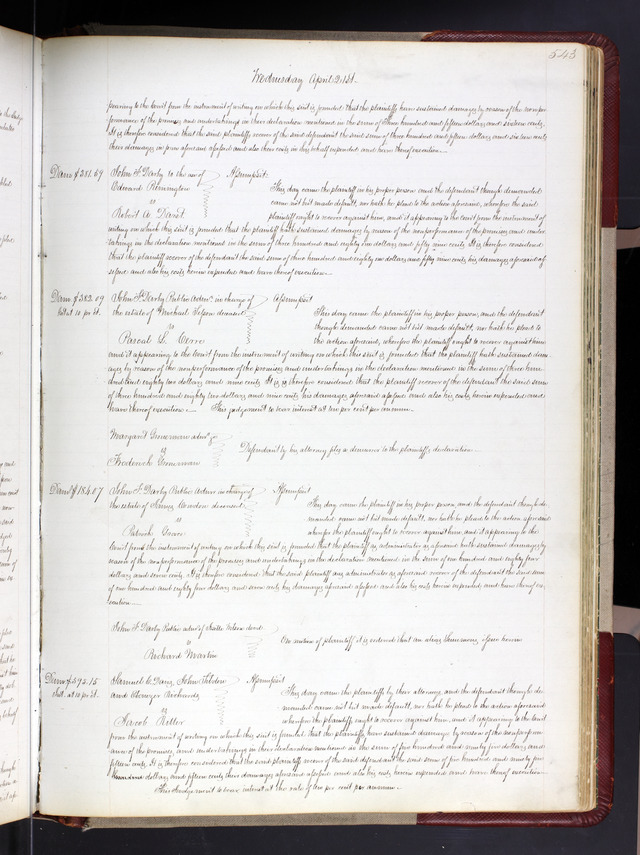 543
Wednesday April 21st.
to the Court from the instrument of writing on which this suit is founded that the plaintiffs have sustained damages by reason of the nonper-
formance of the promises and undertakings in their declaration mentioned in the sum of three hundred and fifteen dollars and sixteen cents.
It is therefore considered that the said plaintiffs recover of the said defendant the said sum of three hundred and fifteen dollars and sixteen cents
their damages in form aforesaid assessed and also their costs in this behalf expended and have thereof execution.
Dam $381.59
John F. Darby to the use of
Edward
vs
Robert A.
Assumpsit
This day came the plaintiff in his proper person and the defendant though demanded
came not but made default, nor doth he plead to the action aforesaid, wherefore the said
plaintiff ought to recover against him, and it appearing to the Court from the instrument of
writing on which this suit is founded that the plaintiff hath sustained damages by reason of the nonperformance of the promises and under-
takings in the declaration mentioned in the sum of three hundred and eighty one dollars and fifty nine cents. It is therefore considered
that the plaintiff recover of the defendant the said sum of three hundred and eighty one dollars and fifty nine cents his damages aforesaid as-
sessed and also his costs herein expended and have thereof execution.
Dam $382.09
Int at 10 pr Ct.
John F. Darby Public Admr. in charge of
the estate of Michael deceased
vs
L. Cerre
Assumpsit
This day came the plaintiff in his proper person, and the defendant
though demanded came not but made default, nor doth he plead to
the action aforesaid, wherefore the plaintiff ought to recover against him
and it appearing to the Court from the instrument of writing on which this suit is founded that the plaintiff hath sustained dam-
ages by reason of the nonperformance of the promises and undertakings in the declaration mentioned in the sum of three hun-
dred and eighty two dollars and nine cents. It is therefore considered that the plaintiff recover of the defendant the said sum
of three hundred and eighty two dollars and nine cents his damages aforesaid assessed and also his costs herein expended and
have thereof execution. This judgement to bear interest at ten per cent per annum.
Margaret admx
vs
Frederick
Defendant by his attorney files a demurrer to the plaintiffs declaration.
Dam $184.07
John F. Darby Public Admr in charge of
the estate of James deceased
vs
Patrick
Assumpsit
This day came the plaintiff in his proper person, and the defendant though de-
manded came not but made default, nor doth he plead to the action aforesaid
wherefore the plaintiff ought to recover against him and it appearing to the
Court from the instrument of writing on which this suit is founded that the plaintiff as administrator as aforesaid hath sustained damages by
reason of the nonperformance of the promises and undertakings in the declaration mentioned in the sum of one hundred and eighty four
dollars and seven cents. It is therefore considered that the said plaintiff as administrator as aforesaid recover of the defendant the said sum
of one hundred and eighty four dollars and seven cents his damages aforesaid assessed and also his costs herein expended and have thereof ex-
ecution.
John F. Darby Public admr of deced
vs
Richard Martin
On motion of plaintiff it is ordered that an alias Summons issue herein
Dam $595.15
Int. at 10 pr Ct.
Samuel C. Davis, John Tilden
and Ebenezer Richards
vs
Jacob Ritter
Assumpsit
This day came the plaintiffs by their attorney, and the defendant though de-
manded came not but made default, nor doth he plead to the action aforesaid
wherefore the plaintiffs ought to recover against him, and it appearing to the Court
from the instrument of writing on which this suit is founded, that the plaintiffs have sustained damages by reason of the nonperform-
ance of the promises, and undertakings in their declaration mentioned in the sum of five hundred and ninety five dollars and
fifteen cents. It is therefore considered that the said plaintiffs recover of the said defendant the said sum of five hundred and ninety five
dollars and fifteen cents their damages aforesaid assessed and also their costs herein expended and have thereof execution.
This Judgement to bear interest at the rate of ten per cent per annum.